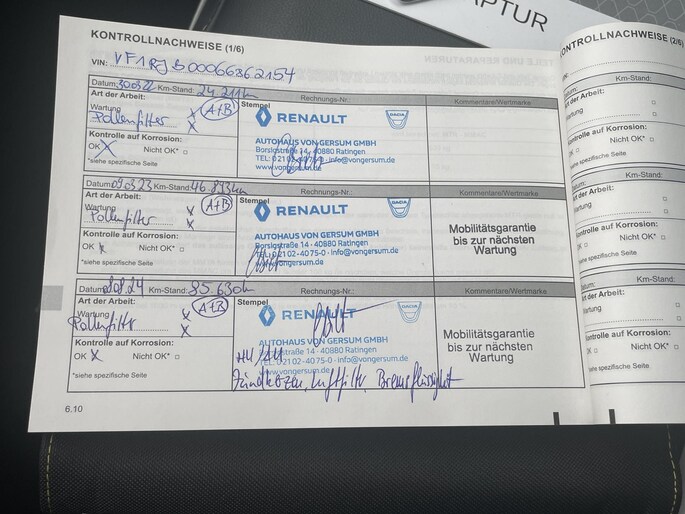 APTUR
KONTROLLNACHWEISE (1/6)
VIN:
Datum: 30.03.22 Km-Stand: 24.211km
Art der Arbeit: A+B
Wartung x
Pollenfilter x
Kontrolle auf Korrosion:
OK x Nicht OK* □
*siehe spezifische Seite
Stempel Rechnungs-Nr.:
RENAULT DACIA
AUTOHAUS VON GERSUM GMBH
Borsigstraße 14 · 40880 Ratingen
TEL: 02102-40 · info@vongersum.de
www.vongersum.de
Kommentare/Wertmarke
Datum: 09.03.23 Km-Stand: 46.893km
Art der Arbeit: A+B
Wartung x
Pollenfilter x
Kontrolle auf Korrosion:
OK x Nicht OK* □
*siehe spezifische Seite
Stempel Rechnungs-Nr.:
RENAULT DACIA
AUTOHAUS VON GERSUM GMBH
Borsigstraße 14 - 40880 Ratingen
TEL: 02102-40 75-0 · info@vongersum.de
vongersum.de
Kommentare/Wertmarke
Mobilitätsgarantie
bis zur nächsten
Wartung
Datum: 24 Km-Stand: 85.630km
Art der Arbeit: A+B
Wartung x
Pollenfilter x
Kontrolle auf Korrosion:
OK x Nicht OK* □
*siehe spezifische Seite
Stempel Rechnungs-Nr.:
RENAULT DACIA
AUTOHAUS VON GERSUM GMBH
straße 14 - 40880 Ratingen
02102-40 75-0 · info@vongersum.de
www.vongersum.de
Zündkerzen, Luftfilter, Bremsflüssigkeit
Kommentare/Wertmarke
Mobilitätsgarantie
bis zur nächsten
Wartung
6.10
KONTROLLNACHWEISE (2/6)
Datum: Km-Stand:
Art der Arbeit:
Wartung □
□
Kontrolle auf Korrosion:
OK □ Nicht OK* □
*siehe spezifische Seite
Datum: Km-Stand:
Art der Arbeit:
Wartung □
□
Kontrolle auf Korrosion:
OK □ Nicht OK* □
*siehe spezifische Seite
Datum: Km-Stand:
Art der Arbeit:
Wartung □
□
Kontrolle auf Korrosion:
OK □ Nicht OK* □
*siehe spezifische Seite